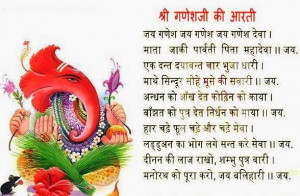 श्री गणेशजी की आरती
जय गणेश जय गणेश जय गणेश देवा।
माता जाकी पार्वती पिता महादेवा॥ जय.
एक दन्त दयावन्त चार भुजा धारी।
माथे सिन्दूर सोहे मूसे की सवारी॥ जय.
अन्धन को आँख देत कोढ़िन को काया।
बाँझन को पुत्र देत निर्धन को माया॥ जय.
हार चढ़े फूल चढ़े और चढ़े मेवा।
लड्डुअन का भोग लगे सन्त करे सेवा॥ जय.
दीनन की लाज राखो, शम्भु पुत्र वारी।
मनोरथ को पूरा करो, जय बलिहारी॥ जय.